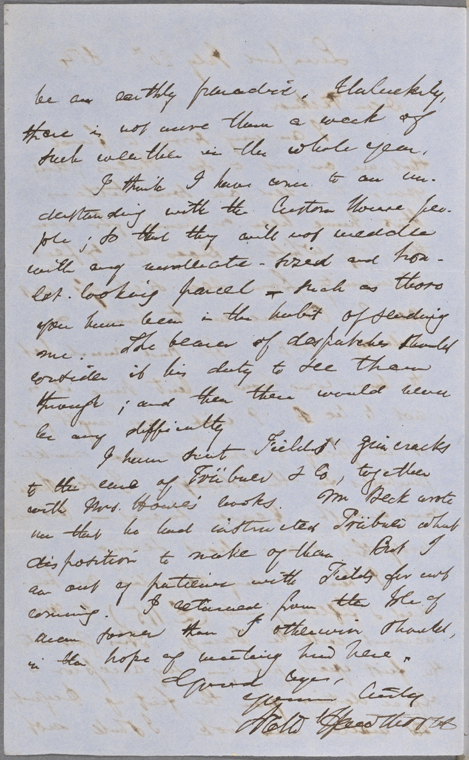 be an earthly paradise. Unluckily,
there is not more than a week of
such weather in the whole year.
I think I have come to an un-
derstanding with the Custom House peo-
ple; so that they will not meddle
with any moderate-sized and hon-
est-looking parcel — such as those
you have been in the habit of sending
me. The bearer of despatches should
consider it his duty to see them
through; and then there would never
be any difficulty
I have sent Fields' gimcracks
to the care of Trübner & Co, together
with Mrs. Howe's books. Mr Beck wrote
me that he had instructed Trübner what
disposition to make of them. But I
am out of patience with Fields for not
coming. I returned from the Isle of
Man sooner than I otherwise should,
in the hope of meeting him here.
Good bye,
Yours Truly
Nath Hawthorne